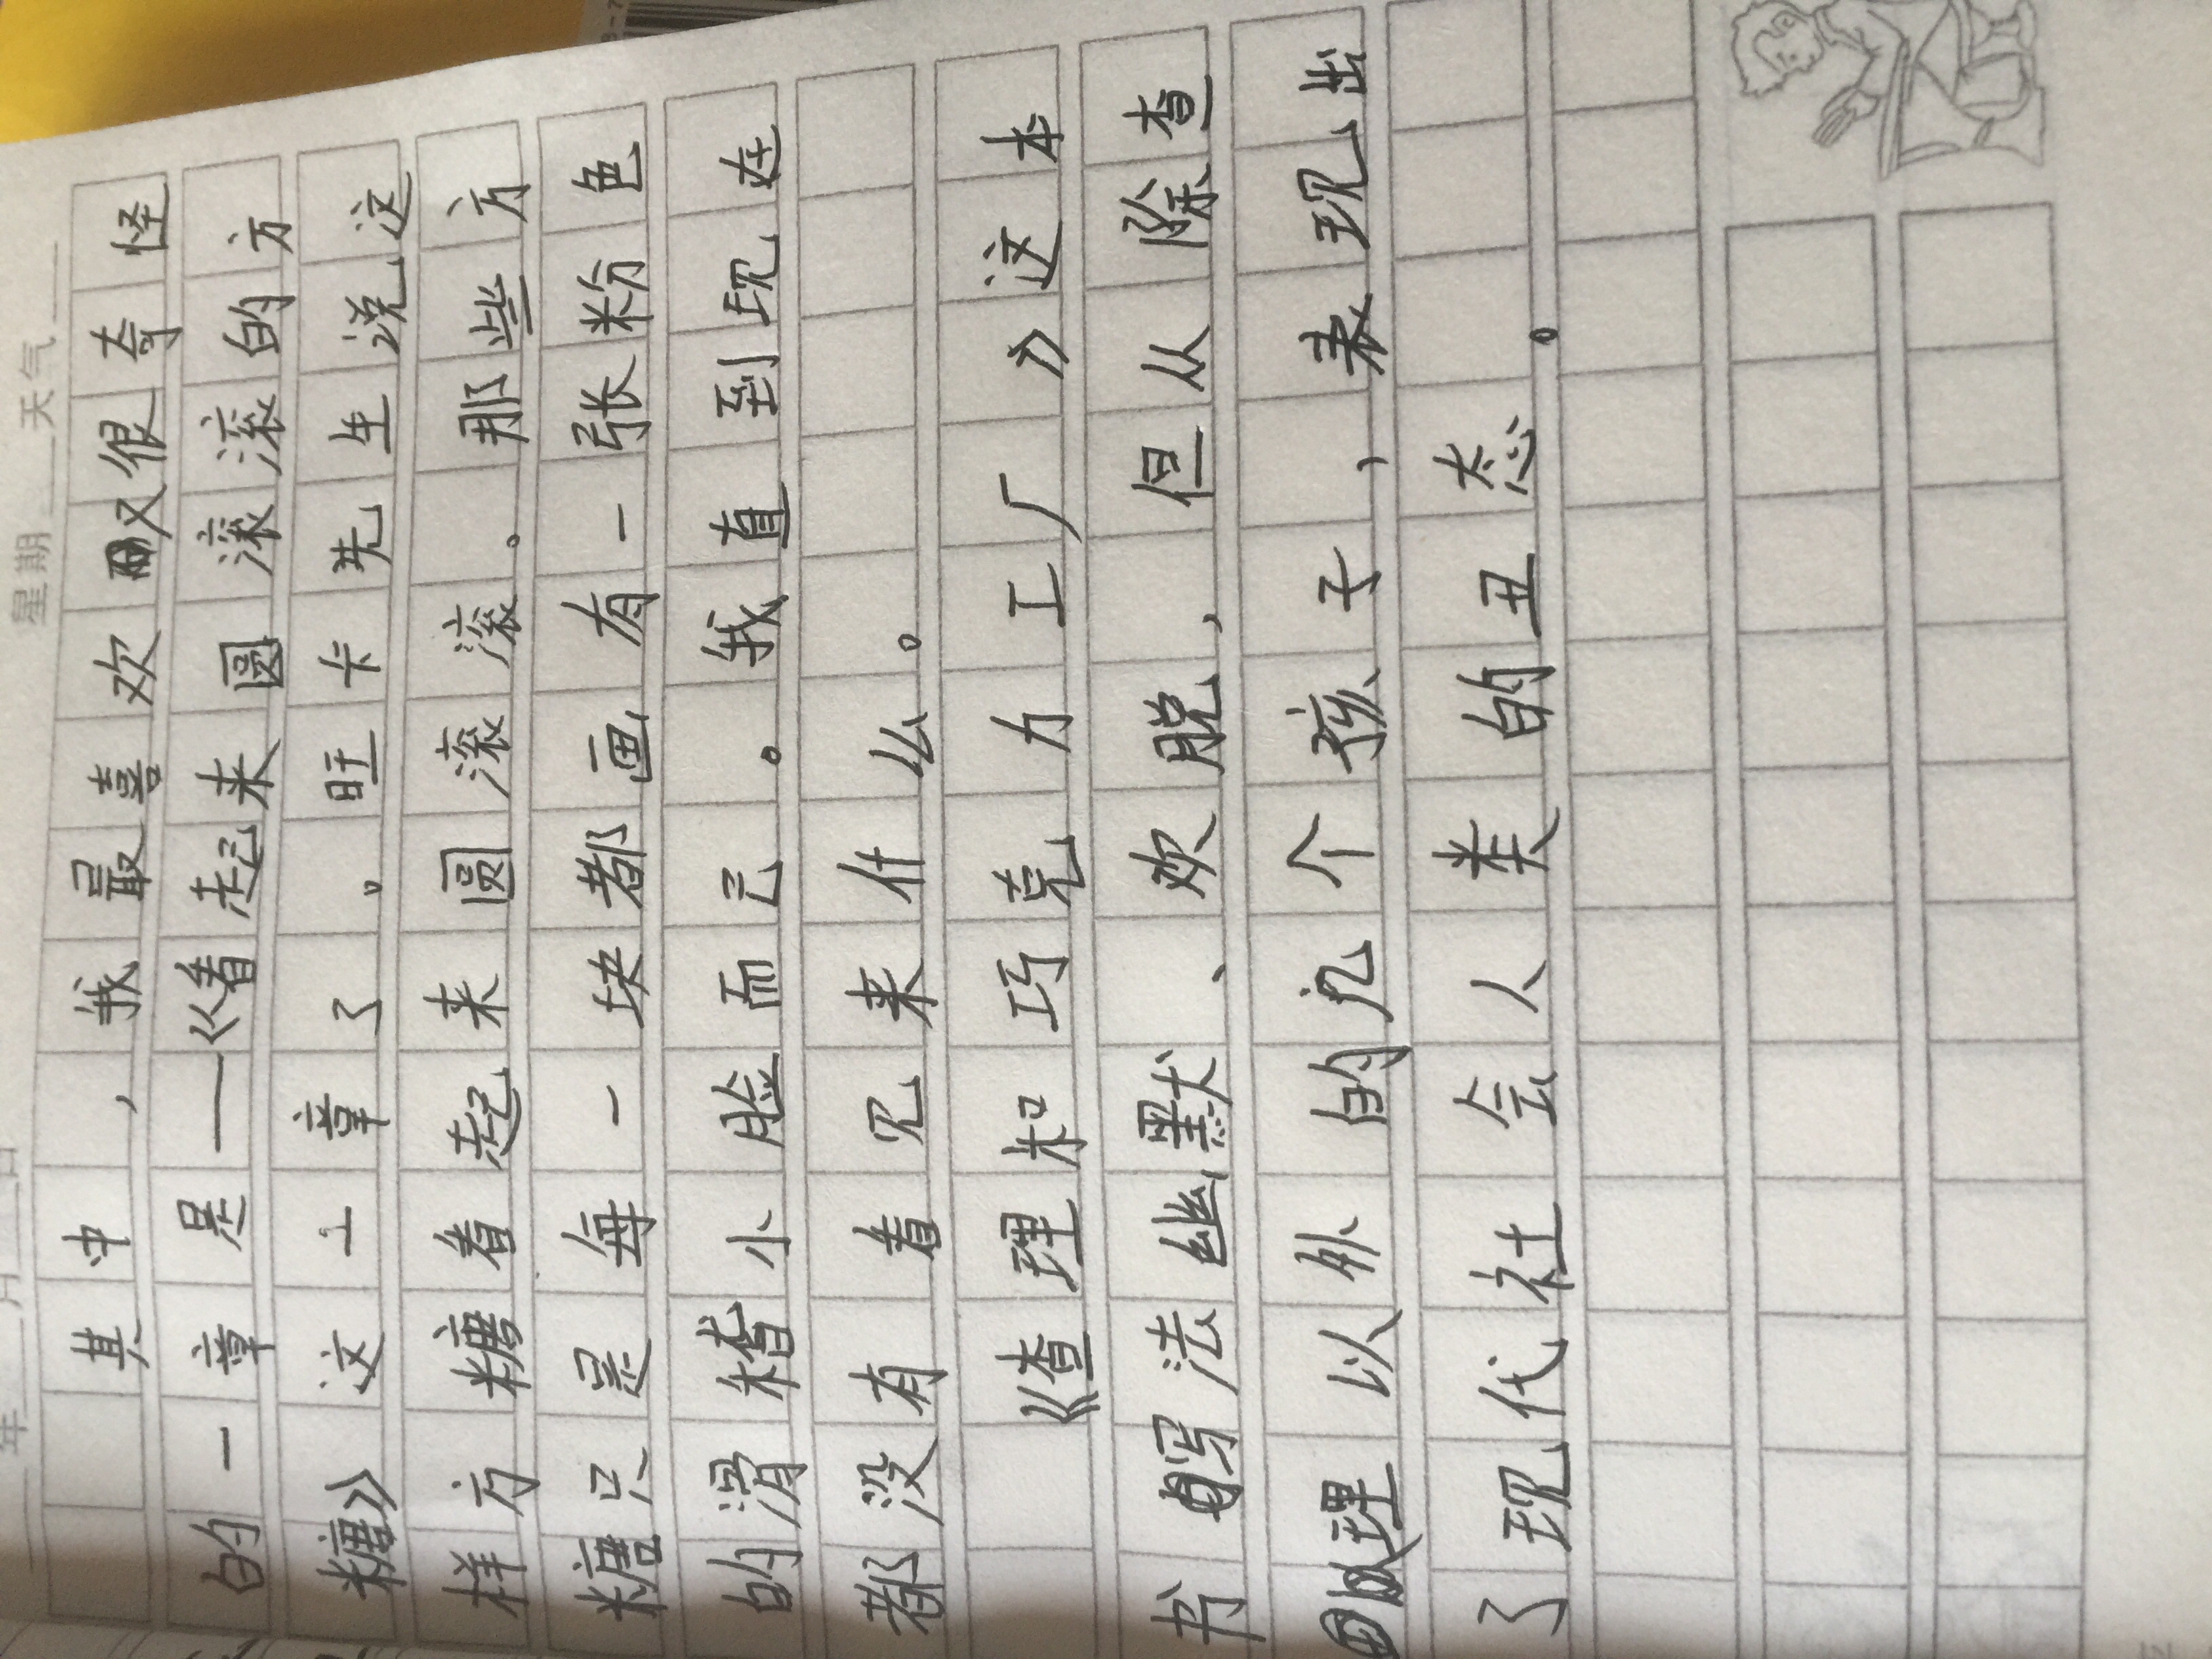 年 月 日 星期 天气
其中，我最喜欢又很奇怪
的一章是——《看起来圆滚滚的方
糖》这一章了。旺卡先生说这
样方糖看起来圆滚滚。那些方
糖只是每一块都画有一张粉色
的滑稽小脸而已。我直到现在
都没有着见来什么。
《查理和巧克力工厂》这本
书写法幽默、欢脱，但从除查
理以外的几个孩子，表现出
了现代社会人类的丑态。